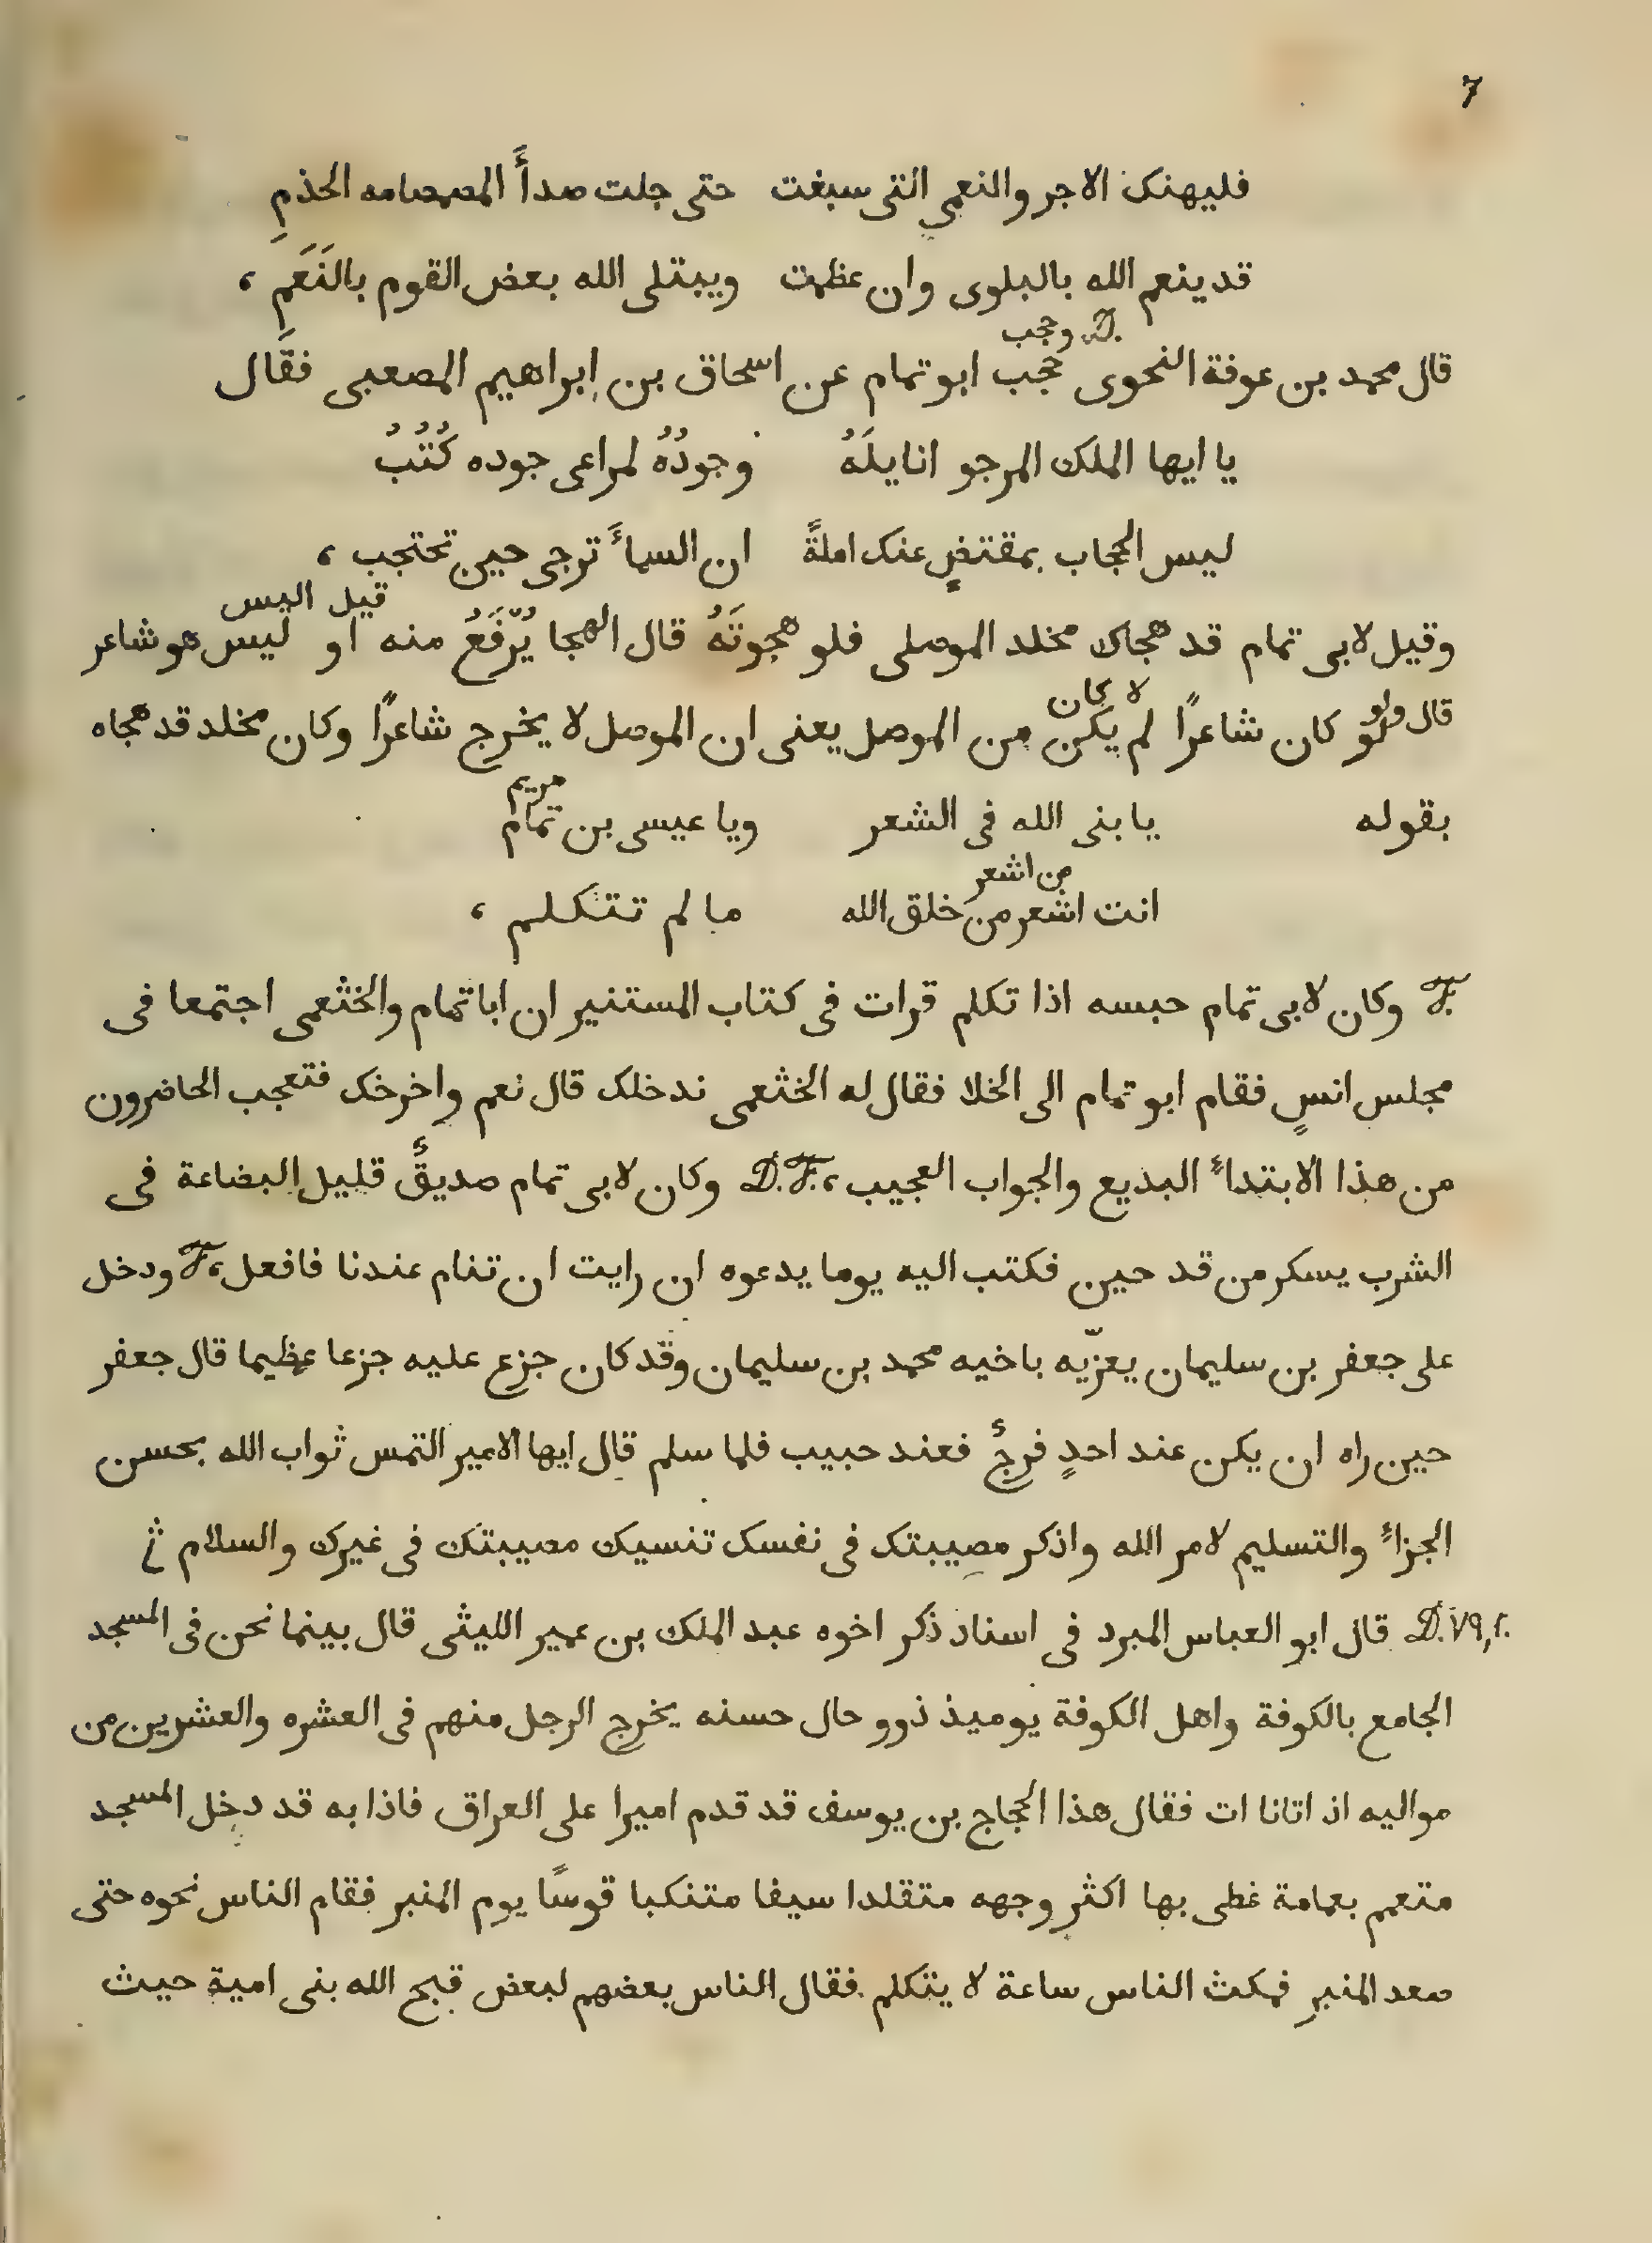 7
فليهنك الاجر والنعمى التى سبغت حتى جلت صدأَ الصمصامه الخذمِ
قد ينعم الله بالبلوى وان عظمت ويبتلى الله بعض القوم بالنَعَمِ ،
D. وحجب
قال محمد بن عوفة النحوى حجب ابو تمام عن اسحاق بن ابراهيم المصعبى فقال
يا ايها الملك المرجو انايلَهُ وجودُهُ لمراعى جوده كُتُبُ
ليس الحجاب بمقتضٍ عنك املةً ان السمأَ ترجى حين تحتجب ،
قيل اليس
وقيل لابى تمام قد هجاك مخلد الموصلى فلو هجوتَهُ قال الهجا يُرّفَعُ منه او ليس هو شاعر
ولو لا كان
قال لو كان شاعرًا لم يكن من الموصل يعنى ان الموصل لا يخرج شاعرًا وكان مخلد قد هجاه
مريم
بقوله يا بنى الله فى الشعر ويا عيسى بن تمام
من اشعر
انت اشعر من خلق الله ما لم تتكلم ،
F. وكان لابى تمام حبسه اذا تكلم قرات فى كتاب المستنير ان ابا تمام والخثعمى اجتمعا فى
مجلس انسٍ فقام ابو تمام الى الخلا فقال له الخثعمى ندخلك قال نعم واخرخك فتعجب الحاضرون
من هذا الابتدأ البديع والجواب العجيب ، D.F. وكان لابى تمام صديقٌ قليل البضاعة فى
الشرب يسكر من قد حين فكتب اليه يوما يدعوه ان رايت ان تنام عندنا فافعل ، F. ودخل
على جعفر بن سليمان يعزّيه باخيه محمد بن سليمان وقد كان جزع عليه جزعا عظيما قال جعفر
حين راه ان يكن عند احدٍ فرجٌ فعند حبيب فلما سلم قال ايها الامير التمس ثواب الله بحسن
الجزأ والتسليم لامر الله واذكر مصيبتك فى نفسك تنسيك مصيبتك فى غيرك والسلام ثم
D. ٧٩,٢. قال ابو العباس المبرد فى اسناد ذكر اخوه عبد الملك بن عمير الليثى قال بينما نحن فى المسجد
الجامع بالكوفة واهل الكوفة يوميذ ذوو حال حسنه يخرج الرجل منهم فى العشره والعشرين من
مواليه اذ اتانا ات فقال هذا الحجاج بن يوسف قد قدم اميرا على العراق فاذا به قد دخل المسجد
متعمم بعمامة غطى بها اكثر وجهه متقلدا سيفا متنكبا قوسًا يوم المنبر فقام الناس نحوه حتى
صعد المنبر فمكث الناس ساعة لا يتكلم فقال الناس بعضهم لبعض قبح الله بنى امية حيث